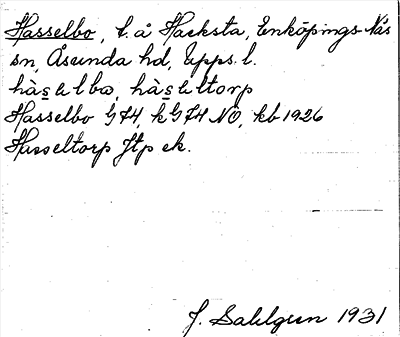 Hasselbo, l. å Hacksta, Enköpings-Näs
sn, Åsunda hd, Upps. l.
hàsəlbω, hàsəltorp
Hasselbo GJ4, kGJ4 NO, kb 1926
Hasseltorp Jtp ek.
J. Sahlgren 1931